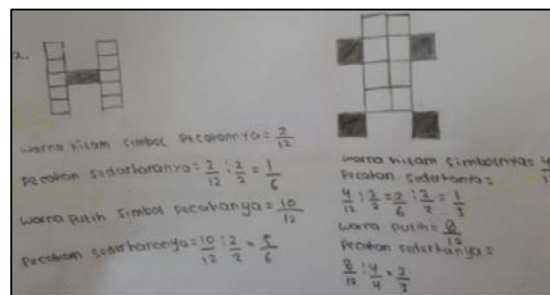 a.
warna hitam simbol pecahannya = 2/12
pecahan sederhananya = 2/12 : 2/2 = 1/6
warna putih simbol pecahanya = 10/12
pecahan sederhananya = 10/12 : 2/2 = 5/6
warna hitam simbolnya = 4/12
pecahan sederhana =
4/12 : 2/2 = 2/6 : 2/2 = 1/3
warna putih = 8/12
pecahan sederhanya =
8/12 : 4/4 = 2/3